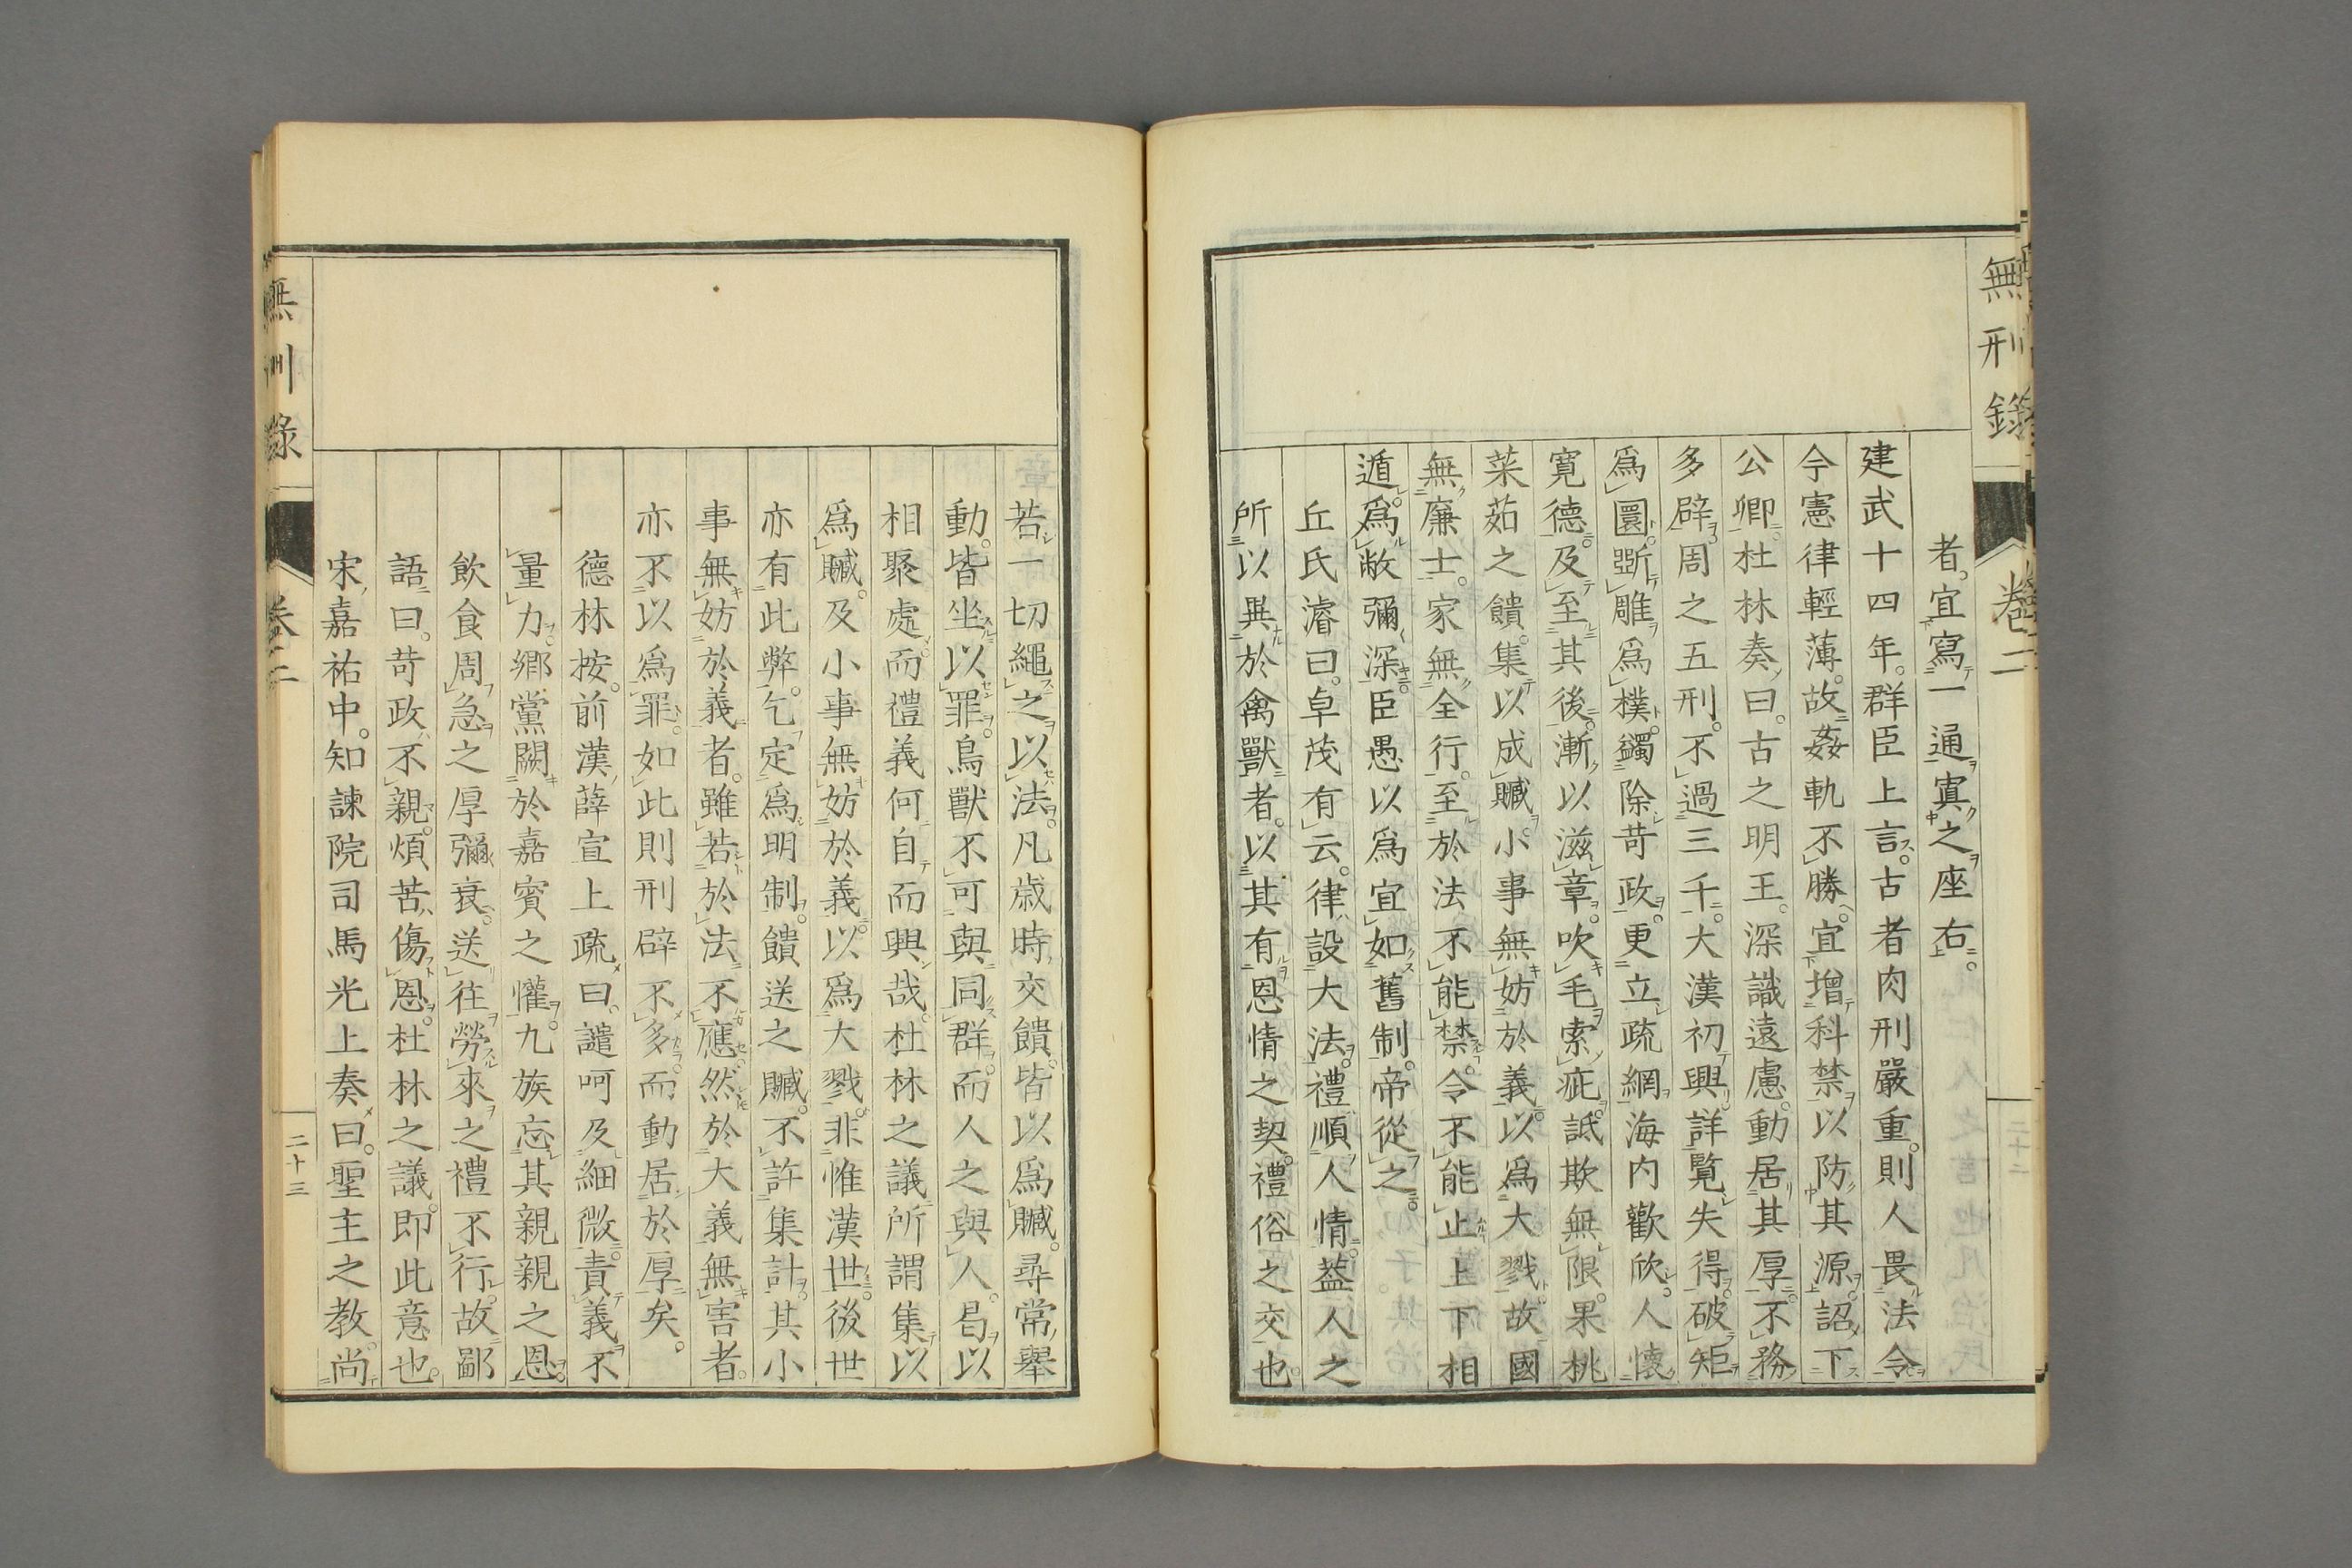 無刑錄
卷二
者。宜寫一通寘之座右。
建武十四年。群臣上言。古者肉刑嚴重。則人畏法令
今憲律輕薄。故姦軌不勝。宜增科禁以防其源。詔下
公卿。杜林奏曰。古之明王。深識遠慮。動居其厚。不務
多辟。周之五刑。不過三千。大漢初興。詳覽失得。破矩
爲圜。斲雕爲樸。蠲除苛政。更立疏網。海内歡欣。人懷
寬德。及至其後。漸以滋章。吹毛索疵。詆欺無限。果桃
菜茹之饋。集以成贓。小事無妨於義。以爲大戮。故國
無廉士。家無全行。至於法不能禁。令不能止。上下相
遁。爲敝彌深。臣愚以爲宜如舊制。帝從之。
丘氏濬曰。卓茂有云。律設大法。禮順人情。葢人之
所以異於禽獸者。以其有恩情之契。禮俗之交也。
若一切繩之以法。凡歲時交饋。皆以爲贓。尋常舉
動。皆坐以罪。鳥獸不可與同群。而人之與人。曷以
相聚處。而禮義何自而興哉。杜林之議。所謂集以
爲贓。及小事無妨於義。以爲大戮。非惟漢世。後世
亦有此弊。乞定爲明制。饋送之贓。不許集計。其小
事無妨於義者。雖若於法不應。然於大義無害者。
亦不以爲罪。如此則刑辟不多。而動居於厚矣。
德林按。前漢薛宣上疏曰。譴呵及細微。責義不
量力。鄉黨闕於嘉賓之懽。九族忘其親親之恩。
飲食周急之厚彌衰。送往勞來之禮不行。故鄙
語曰。苛政不親。煩苦傷恩。杜林之議。即此意也。
宋嘉祐中。知諫院司馬光上奏曰。聖主之教。尚
無刑錄
卷二
二十三